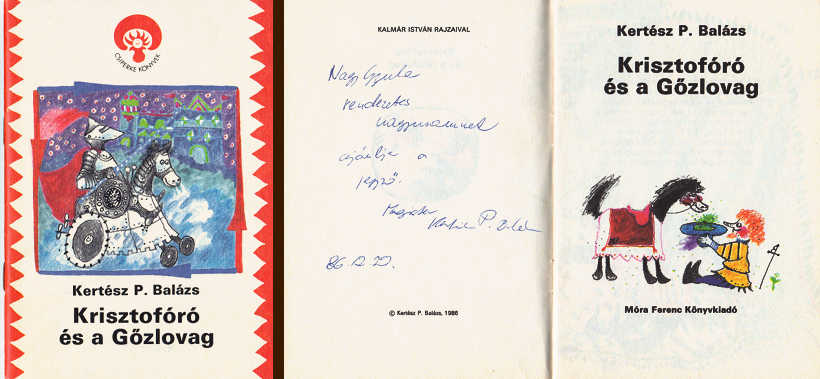 CSIPERKE KÖNYVEK
Kertész P. Balázs
Krisztofóró
és a Gőzlovag
KALMÁR ISTVÁN RAJZAIVAL
Nagy Gyula
rendezőes
ajánlja a
szerző.
P.
86.
© Kertész P. Balázs, 1986
Kertész P. Balázs
Krisztofóró
és a Gőzlovag
Móra Ferenc Könyvkiadó